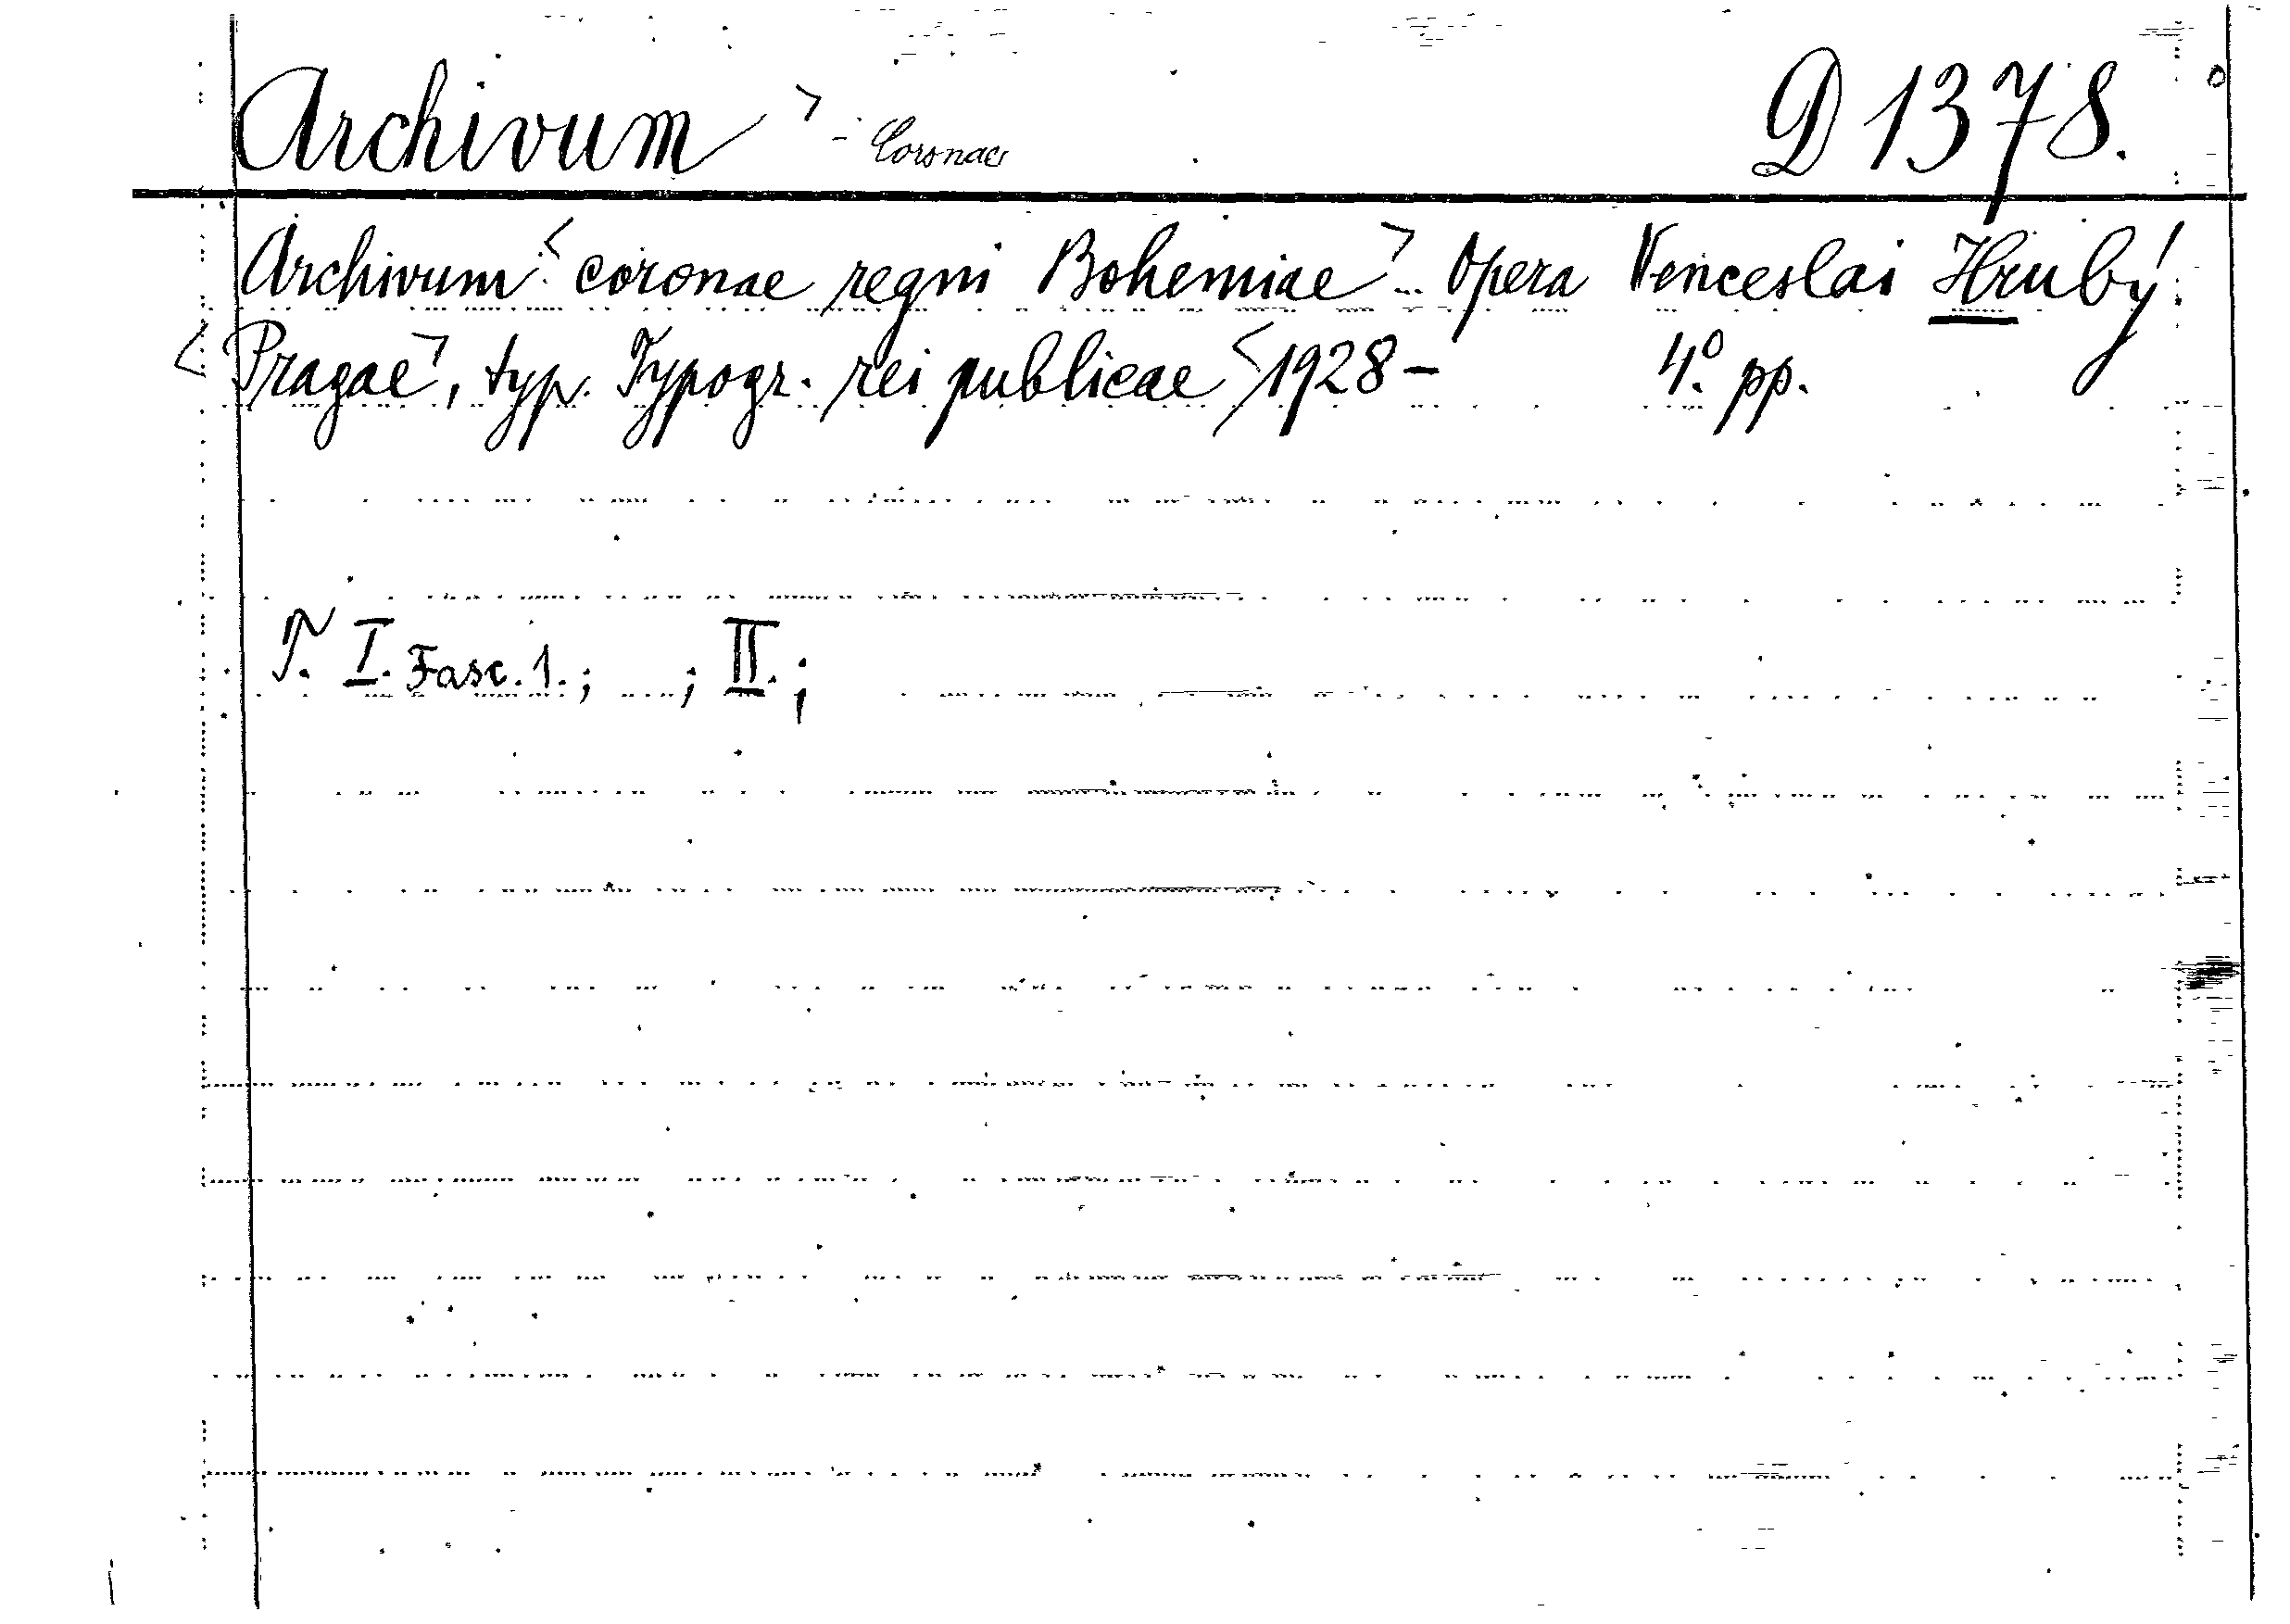 Archivum > - Coronae D 1378.
Archivum < coronae regni Bohemiae > .. Opera Venceslai Hrubý.
< Pragae >, typ. Typogr. rei publicae < 1928 - 4.° pp.
T. I. Fasc. 1. ; ; II. ;